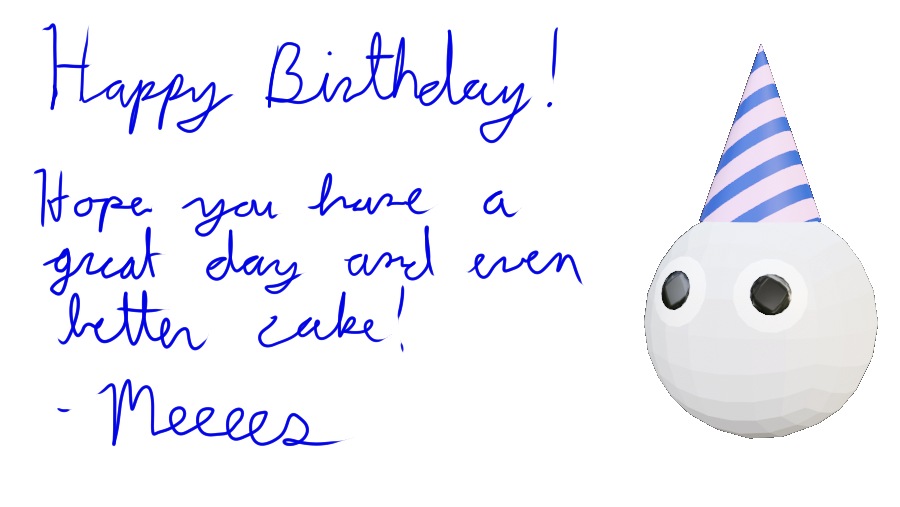 Happy Birthday!
Hope you have a
great day and even
better cake!
- Meeees